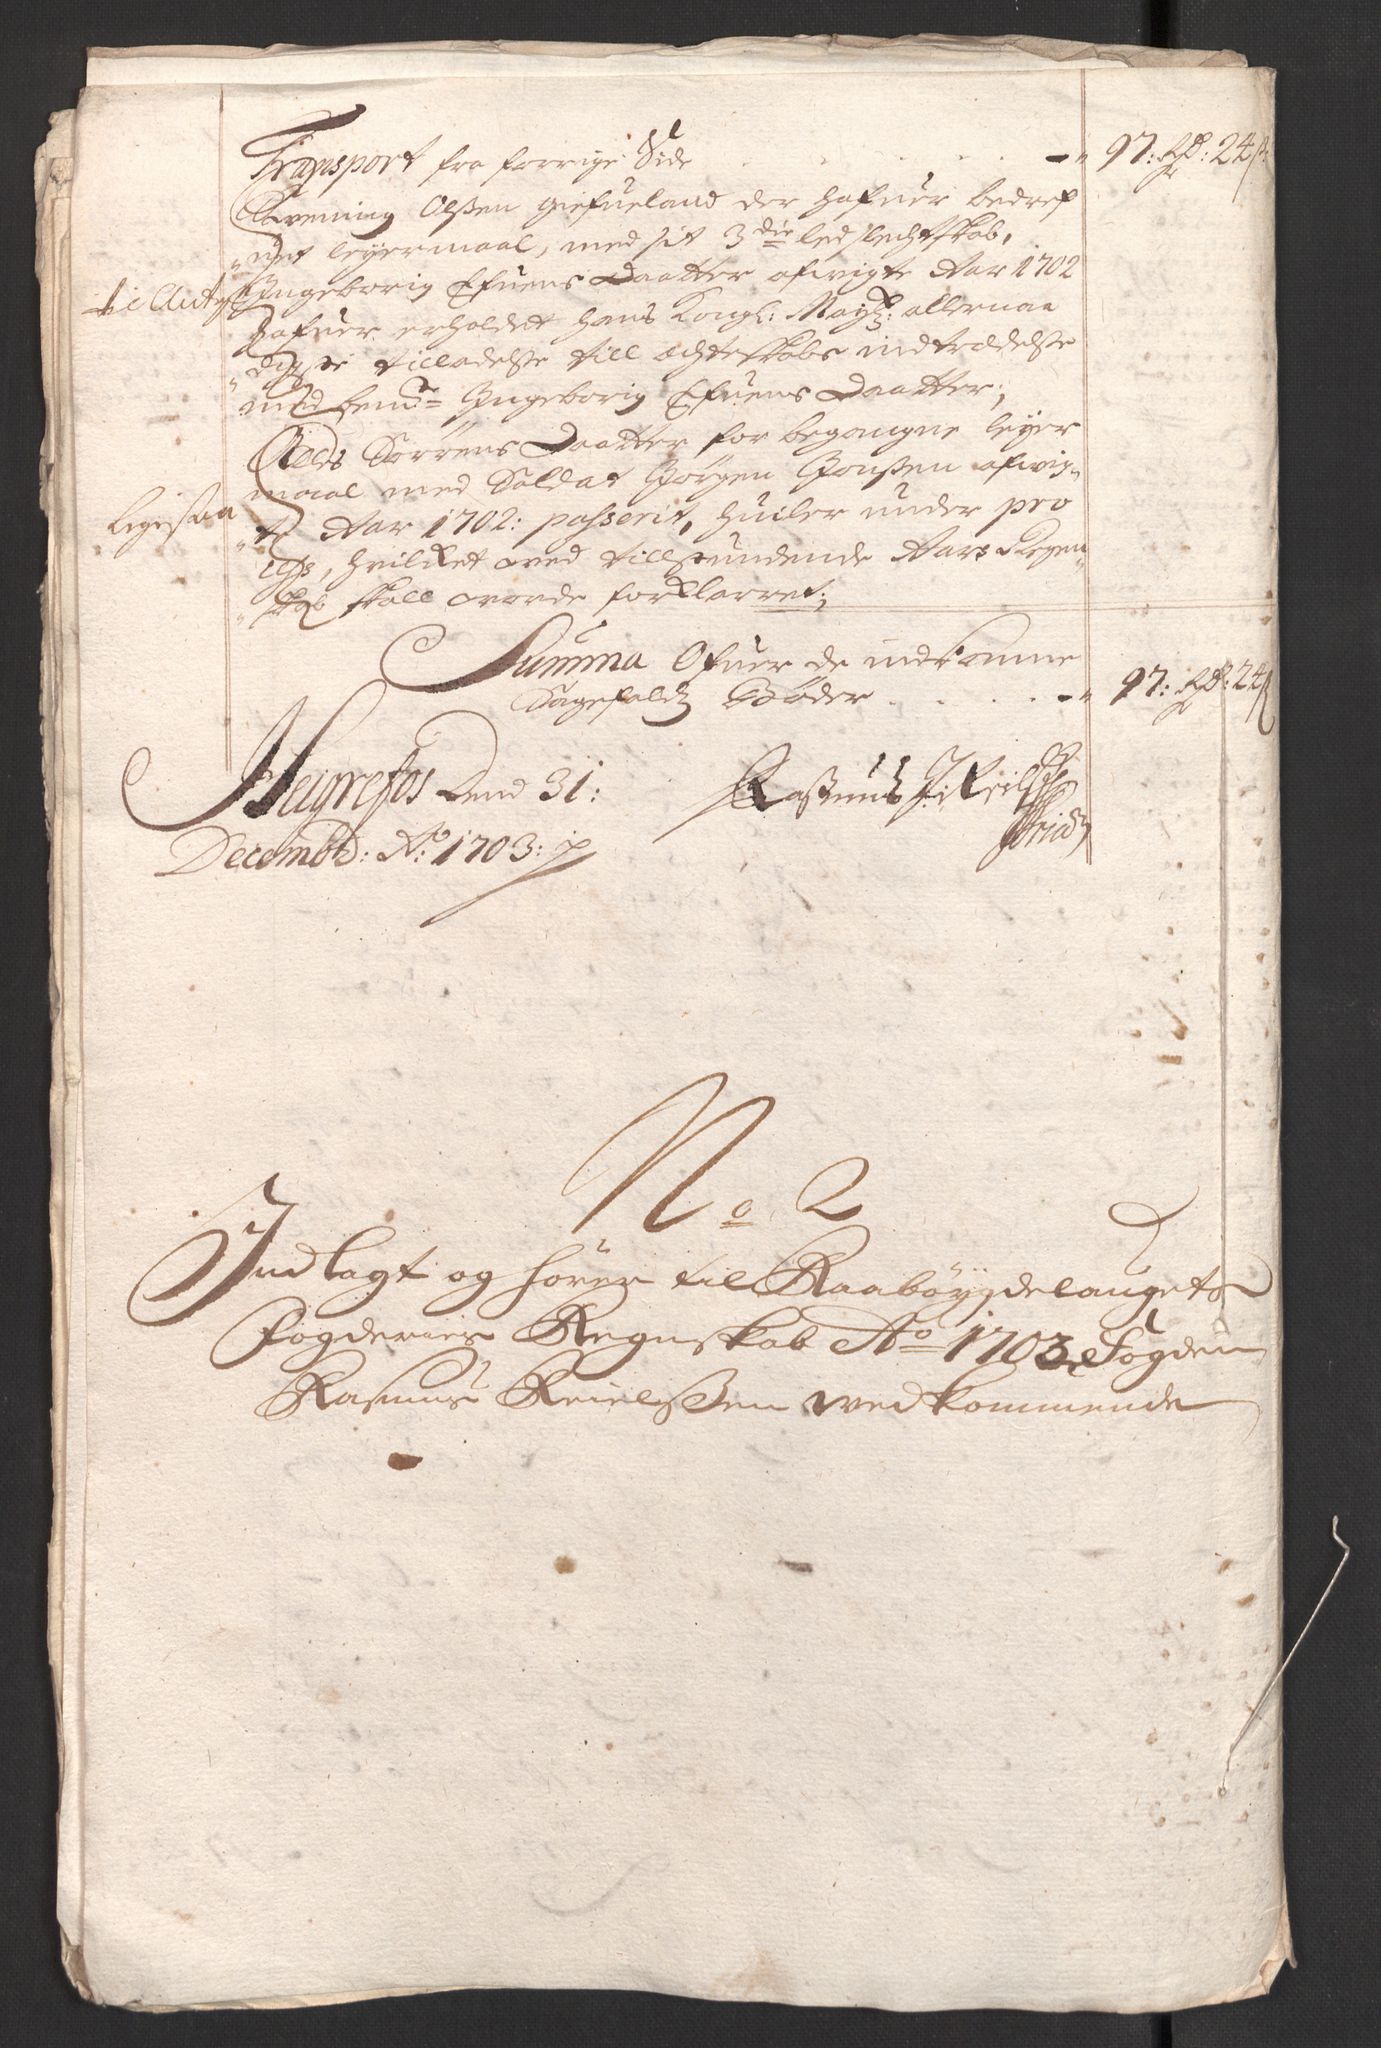 Transport fra forrige Side . . . . . . 97: Rd: 24 s:
Svening Olßen Giefueland der hafuer bedref
uet leyermaal, med sit 3die led slechtskab,
Ingeborig Efuens Daatter afwigte Aar 1702
hafuer erholdet hans Kongl: Maytz: allernaa
digste tilladelße till ægteskabs indtrædelße
med bemte Ingeborig Efuens Daatter;
Sørrens Daatter for begangne leyer
maal med Soldat Jørgen Jonßen afwig-
te Aar 1702: passerit, huiler under pro
cess, hvilket wed tillstundende Aars Regen
skab skall worde forklarret;
Summa Ofuer de indkomne
Sagefaldz Bøder . . . . . 97: Rd: 24 s
Neigrefos Dend 31:
Decembr: Ao: 1703:
Rasmus
No. 2
Indlagt og hører til Raabøygdelaugets
Fogderies Regnskab Ao 1703, Fogden
Rasmus Keielßen wedkommende